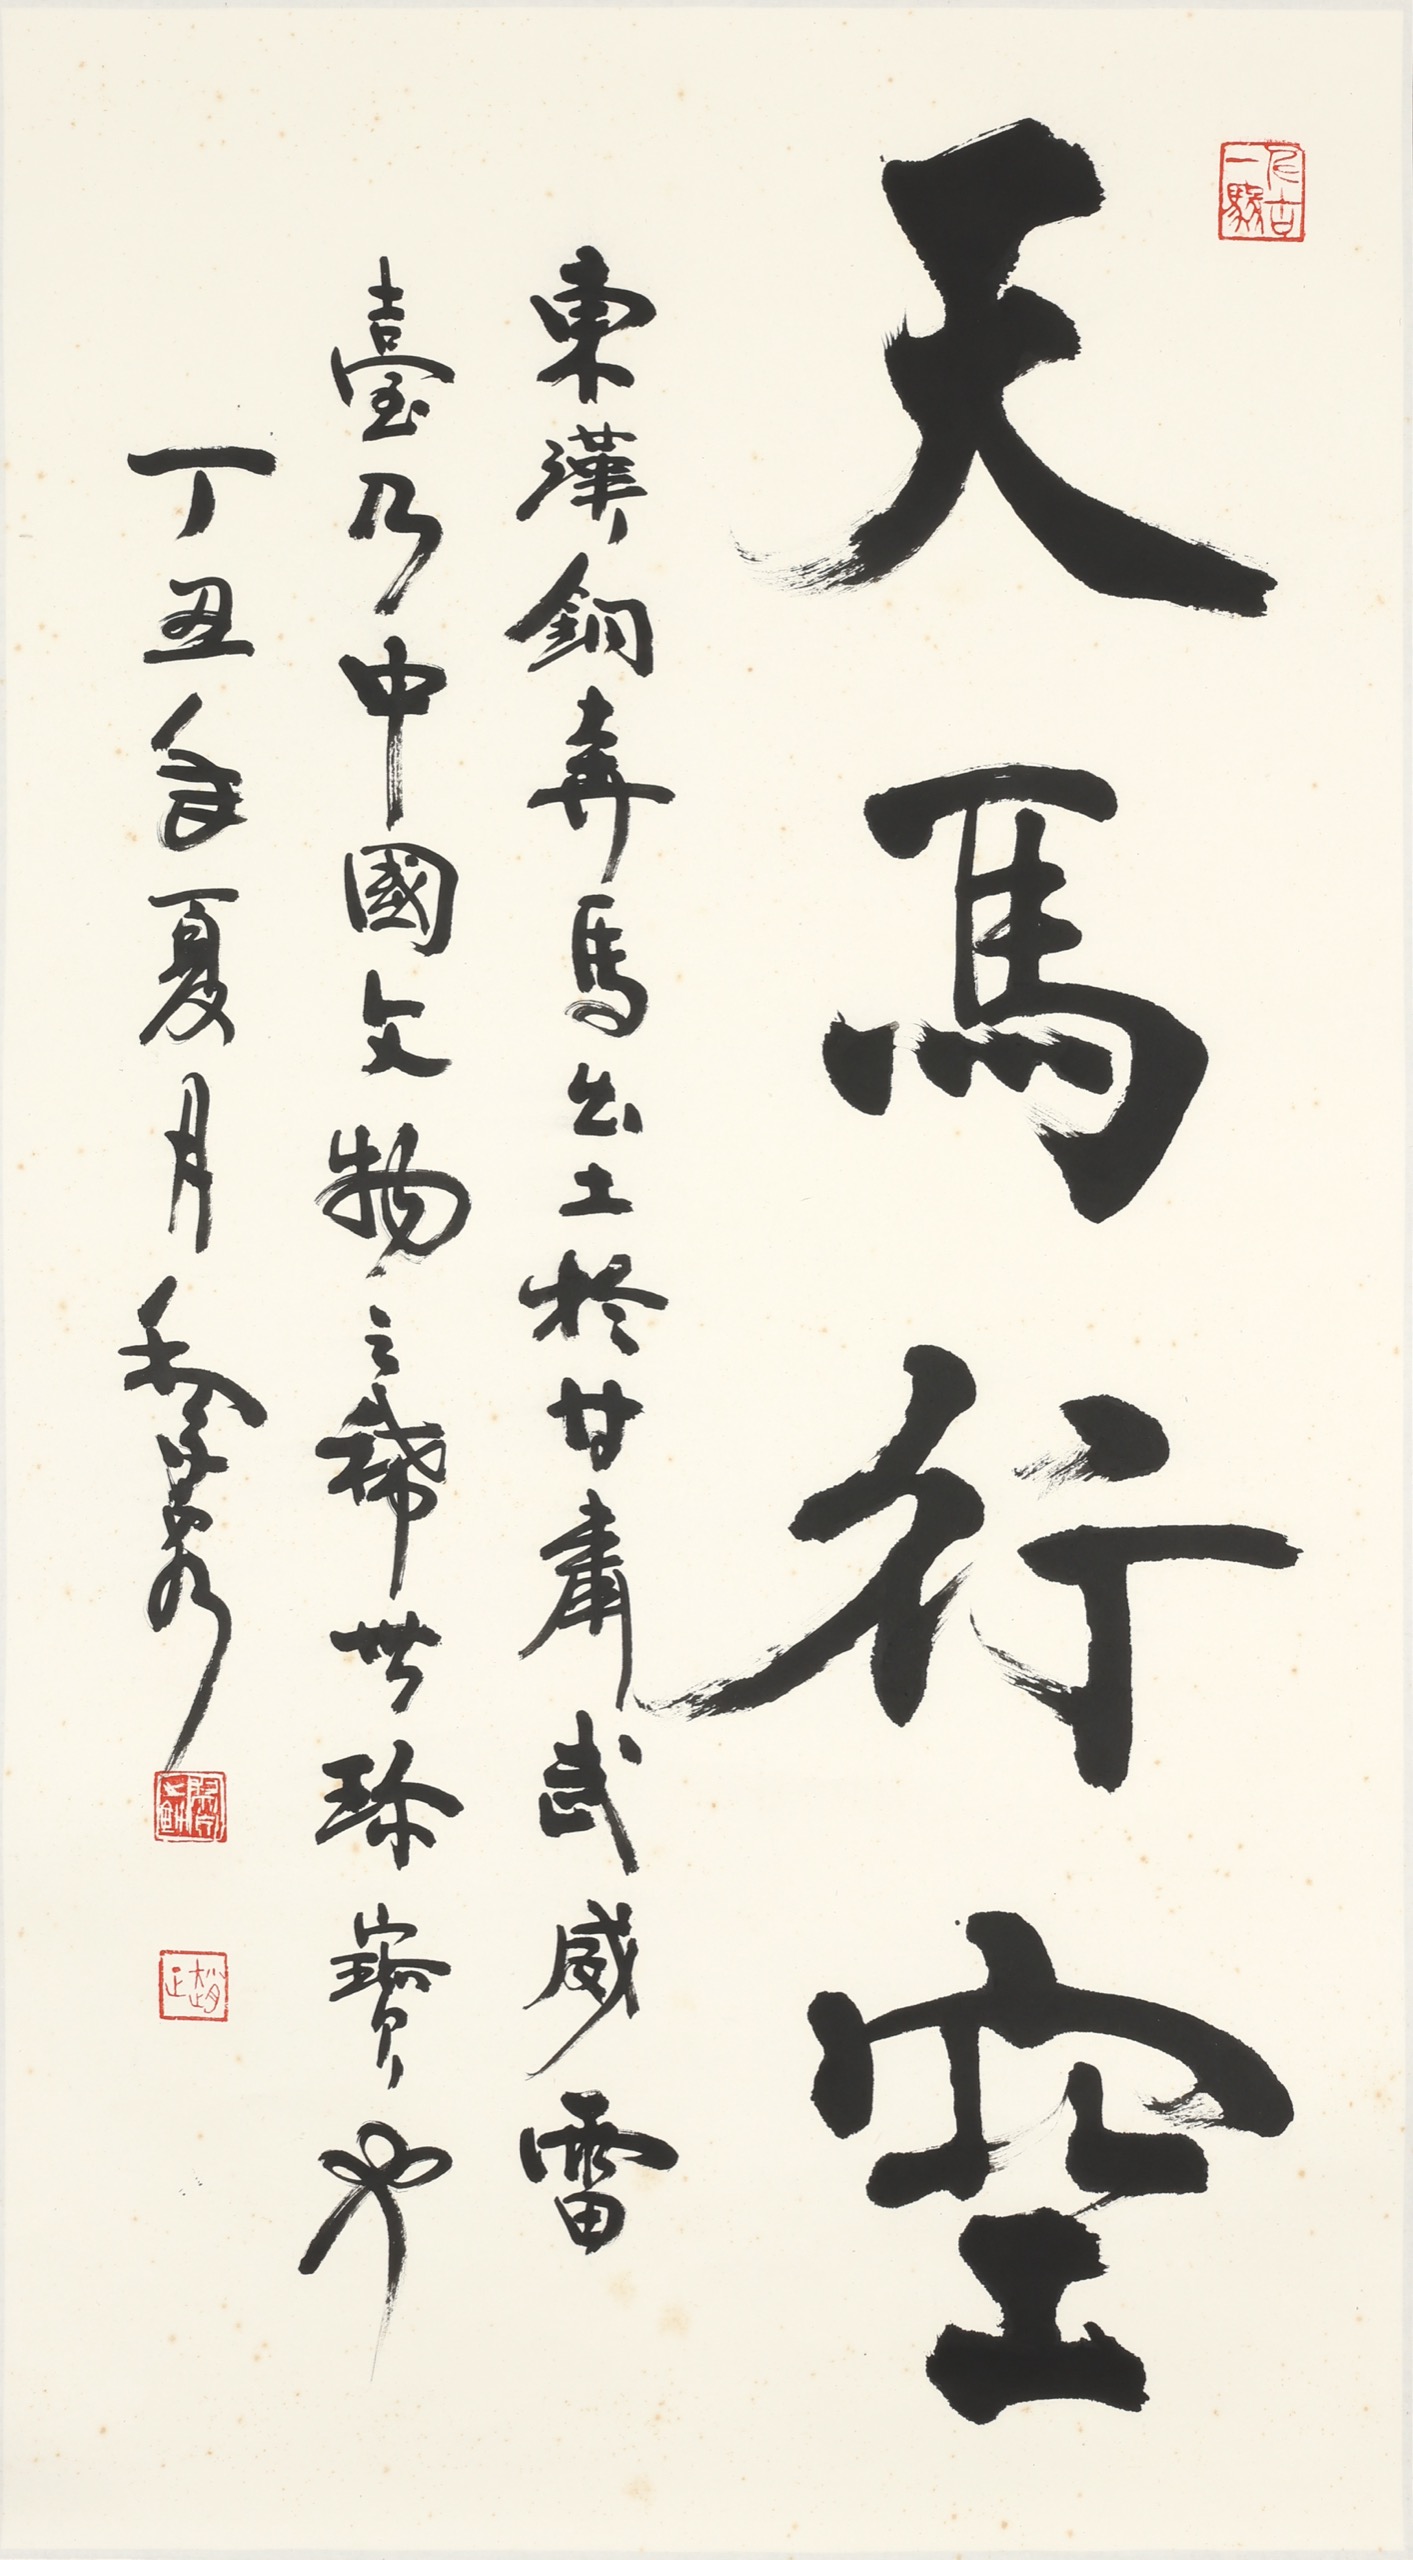 天馬行空
東漢銅奔馬出土於甘肅武威雷
臺乃中國文物之稀世珍寶也
丁丑年夏月